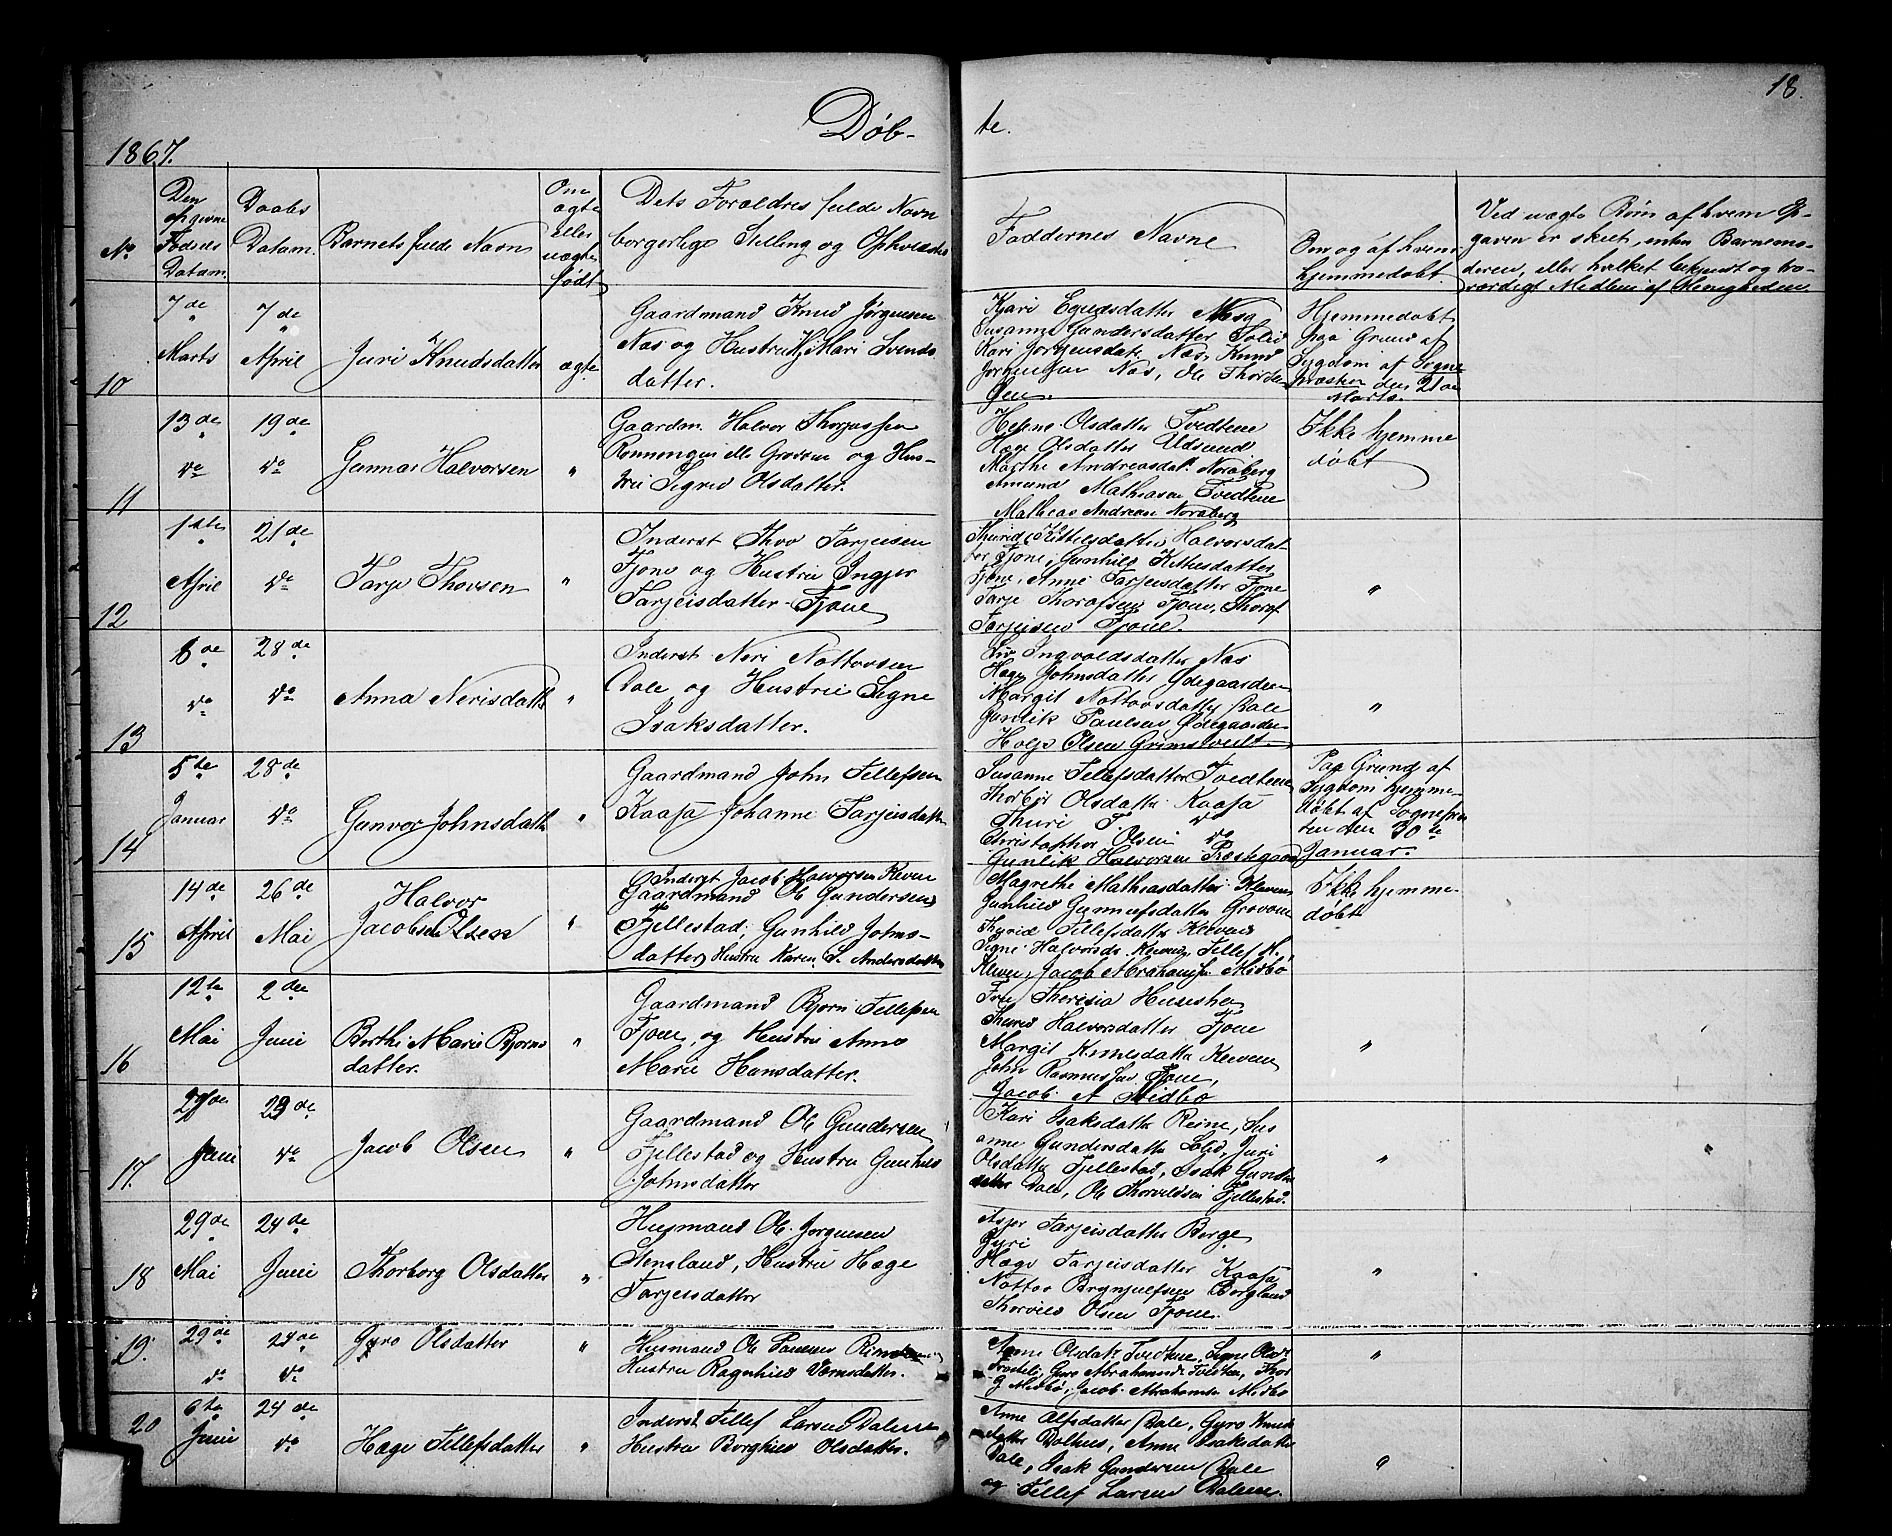 18.
Døb-
te.
1867.
No
Den opgivne Fødsels Datum.
Daabs Datum.
Barnets fulde Navn
Om ægte eller uægte født
Dets Forældres fulde Navn
borgerlige Stilling og Opholdssted
Faddernes Navne
Om og af hvem
hjemmedøbt.
Ved uægte Børn af hvem Op-
gaven er skeet, enten Barnemo-
deren, eller hvilket bekjendt og tro-
værdigt Medlem af Menigheden
10
7de Marts
7de April
Juri Knudsdatter
ægte
Gaardmand Knud Jørgensen
Næs og Hustru Mari Svends
datter.
Susanne Gundersdatter Solid
Kari Jørgensdat. Næs, Knud
Jørgensen Næs, Ole Thorsen
Hjemmedøbt
paa Grund af
Sygdom af Sogne
præsten den 21de
Marts.
11
13de do
19de do
Gunnar Halvorsen
"
Gaardm. Halvor
Rønningen eller Grovene og Hus-
tru Sigrid Olsdatter.
Helene Olsdatter Tvedtene
Hæge Olsdatter Udsund
Marthe Andreasdat. Noraberg
Amund Mathiasen Tvedtene
Mathias Andreasen Noraberg
Ikke hjemme
døbt
12
1ste April
21de do
Tarje Thovsen
"
Inderst Thov Tarjeisen
Fjone og Hustru Ingjer
Tarjeisdatter Fjone
Thurid Kittelsdatter, Halvorsdat-
ter Fjone, Gunhild Kittelsdatter
Fjone, Anne Tarjeisdatter Fjone
Tarje Thorafsen Fjone, Thoraf
Tarjeisen Fjone.
"
13
6de do
28de do
Anna Nerisdatter
"
Inderst Neri Nottovsen
Dale og Hustru Signe
Isaksdatter.
Liv Ingvoldsdatter Næs
Hæge Johnsdatter Ødegaarden
Margit Nottovsdatter Dale
Gunlik Paulsen Ødegaarden
Holje Olsen Grimstvedt
"
14
5te Januar
28de do
Gunvor Johnsdatter
"
Gaardmand John Tellefsen
Kaasa Johanne Tarjeisdatter
Susanne Tellefsdatter Tvedtene
Thorbør Olsdatter Kaasa
Thuri T. do
Christopher Olsen do
Gunlik Halvorsen Præstegaard
Paa Grund af
Sygdom hjemme-
døbt af Sognepræs
ten den 30te
Januar.
15
14de April
26de Mai
Halvor
Jacobsen Olsen
"
Inderst Jacob Halvorsen Kleven
Gaardmand Ole Gundersen
Fjellestad, Gunhild Johns-
datter Hustru Karen S. Andersdatter
Magrethe Mathiasdatter Kleven
Gunhild Gunulfsdatter Grovene
Thurid Tellefsdatter Kleven
Signe Halvorsd. Kleven, Tellef H.
Kleven, Jacob Abrahams. Midbø
Ikke hjemme
døbt
16
12te Mai
2den Juni
Berthe Marie Bjørns
datter.
"
Gaardmand Bjørn Tellefsen
Fjone, og Hustru Anne
Marie Hansdatter.
Fru Theresia
Thurid Halvorsdatter Fjone
Margit Knudsdatter Kleven
John Rasmussen Fjone,
Jacob A Midbø
"
17.
Juni
23de do
Jacob Olsen
"
Gaardmand Ole Gundersen
Fjellestad og Hustru Gunhild
Johnsdatter
Kari Isaksdatter Reine, Sus
anne Gundersdatter Solid, Juri
Olsdatter Fjellestad, Isak Gunder
Dale, Ole Thorvildsen Fjellestad.
"
"
18
29de Mai
24de Juni
Thorborg Olsdatter
"
Husmand Ole Jørgensen
Stensland, Hustru Hæge
Tarjeisdatter
Asjer Tarjeisdatter Berge
Gyri
Hæge Tarjeisdatter Kaasa
Nottov Brynjulfsen Borgland
Thorvild Olsen Fjone.
"
19.
29de do
24de do
Gyro Olsdatter
"
Husmand Ole
Hustru Ragnhild
Anne Olsdat. Tvedtene, Signe Olsd.
Gyro Abrahamsd. Tvedten, Thor
G Midbø, Jacob Abrahamsen Midbø
"
20
6te Juni
24de do
Hæge Tellefsdatter
"
Inderst Tellef Larsen Dalene
Hustru Borghild Olsdatter.
Anne Olfsdatter Dale, Gyro Knuds
datter Dalhus, Anne Isaksdatter
Dale, Isak Gundersen Dale
og Tellef Larsen Dalene.
"